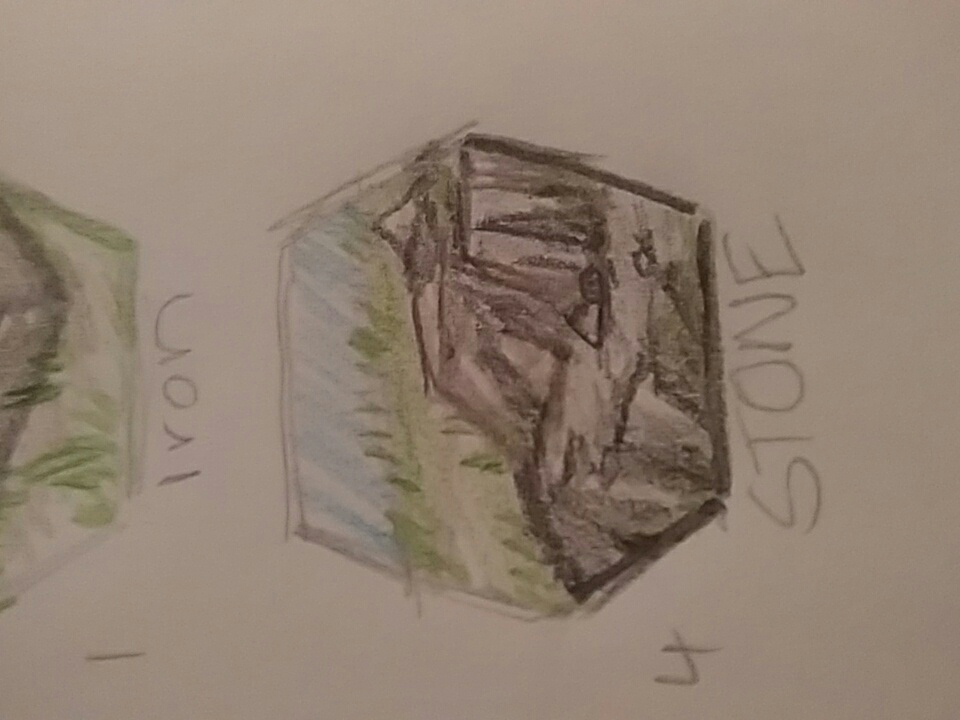 1
Iron
4
STONE